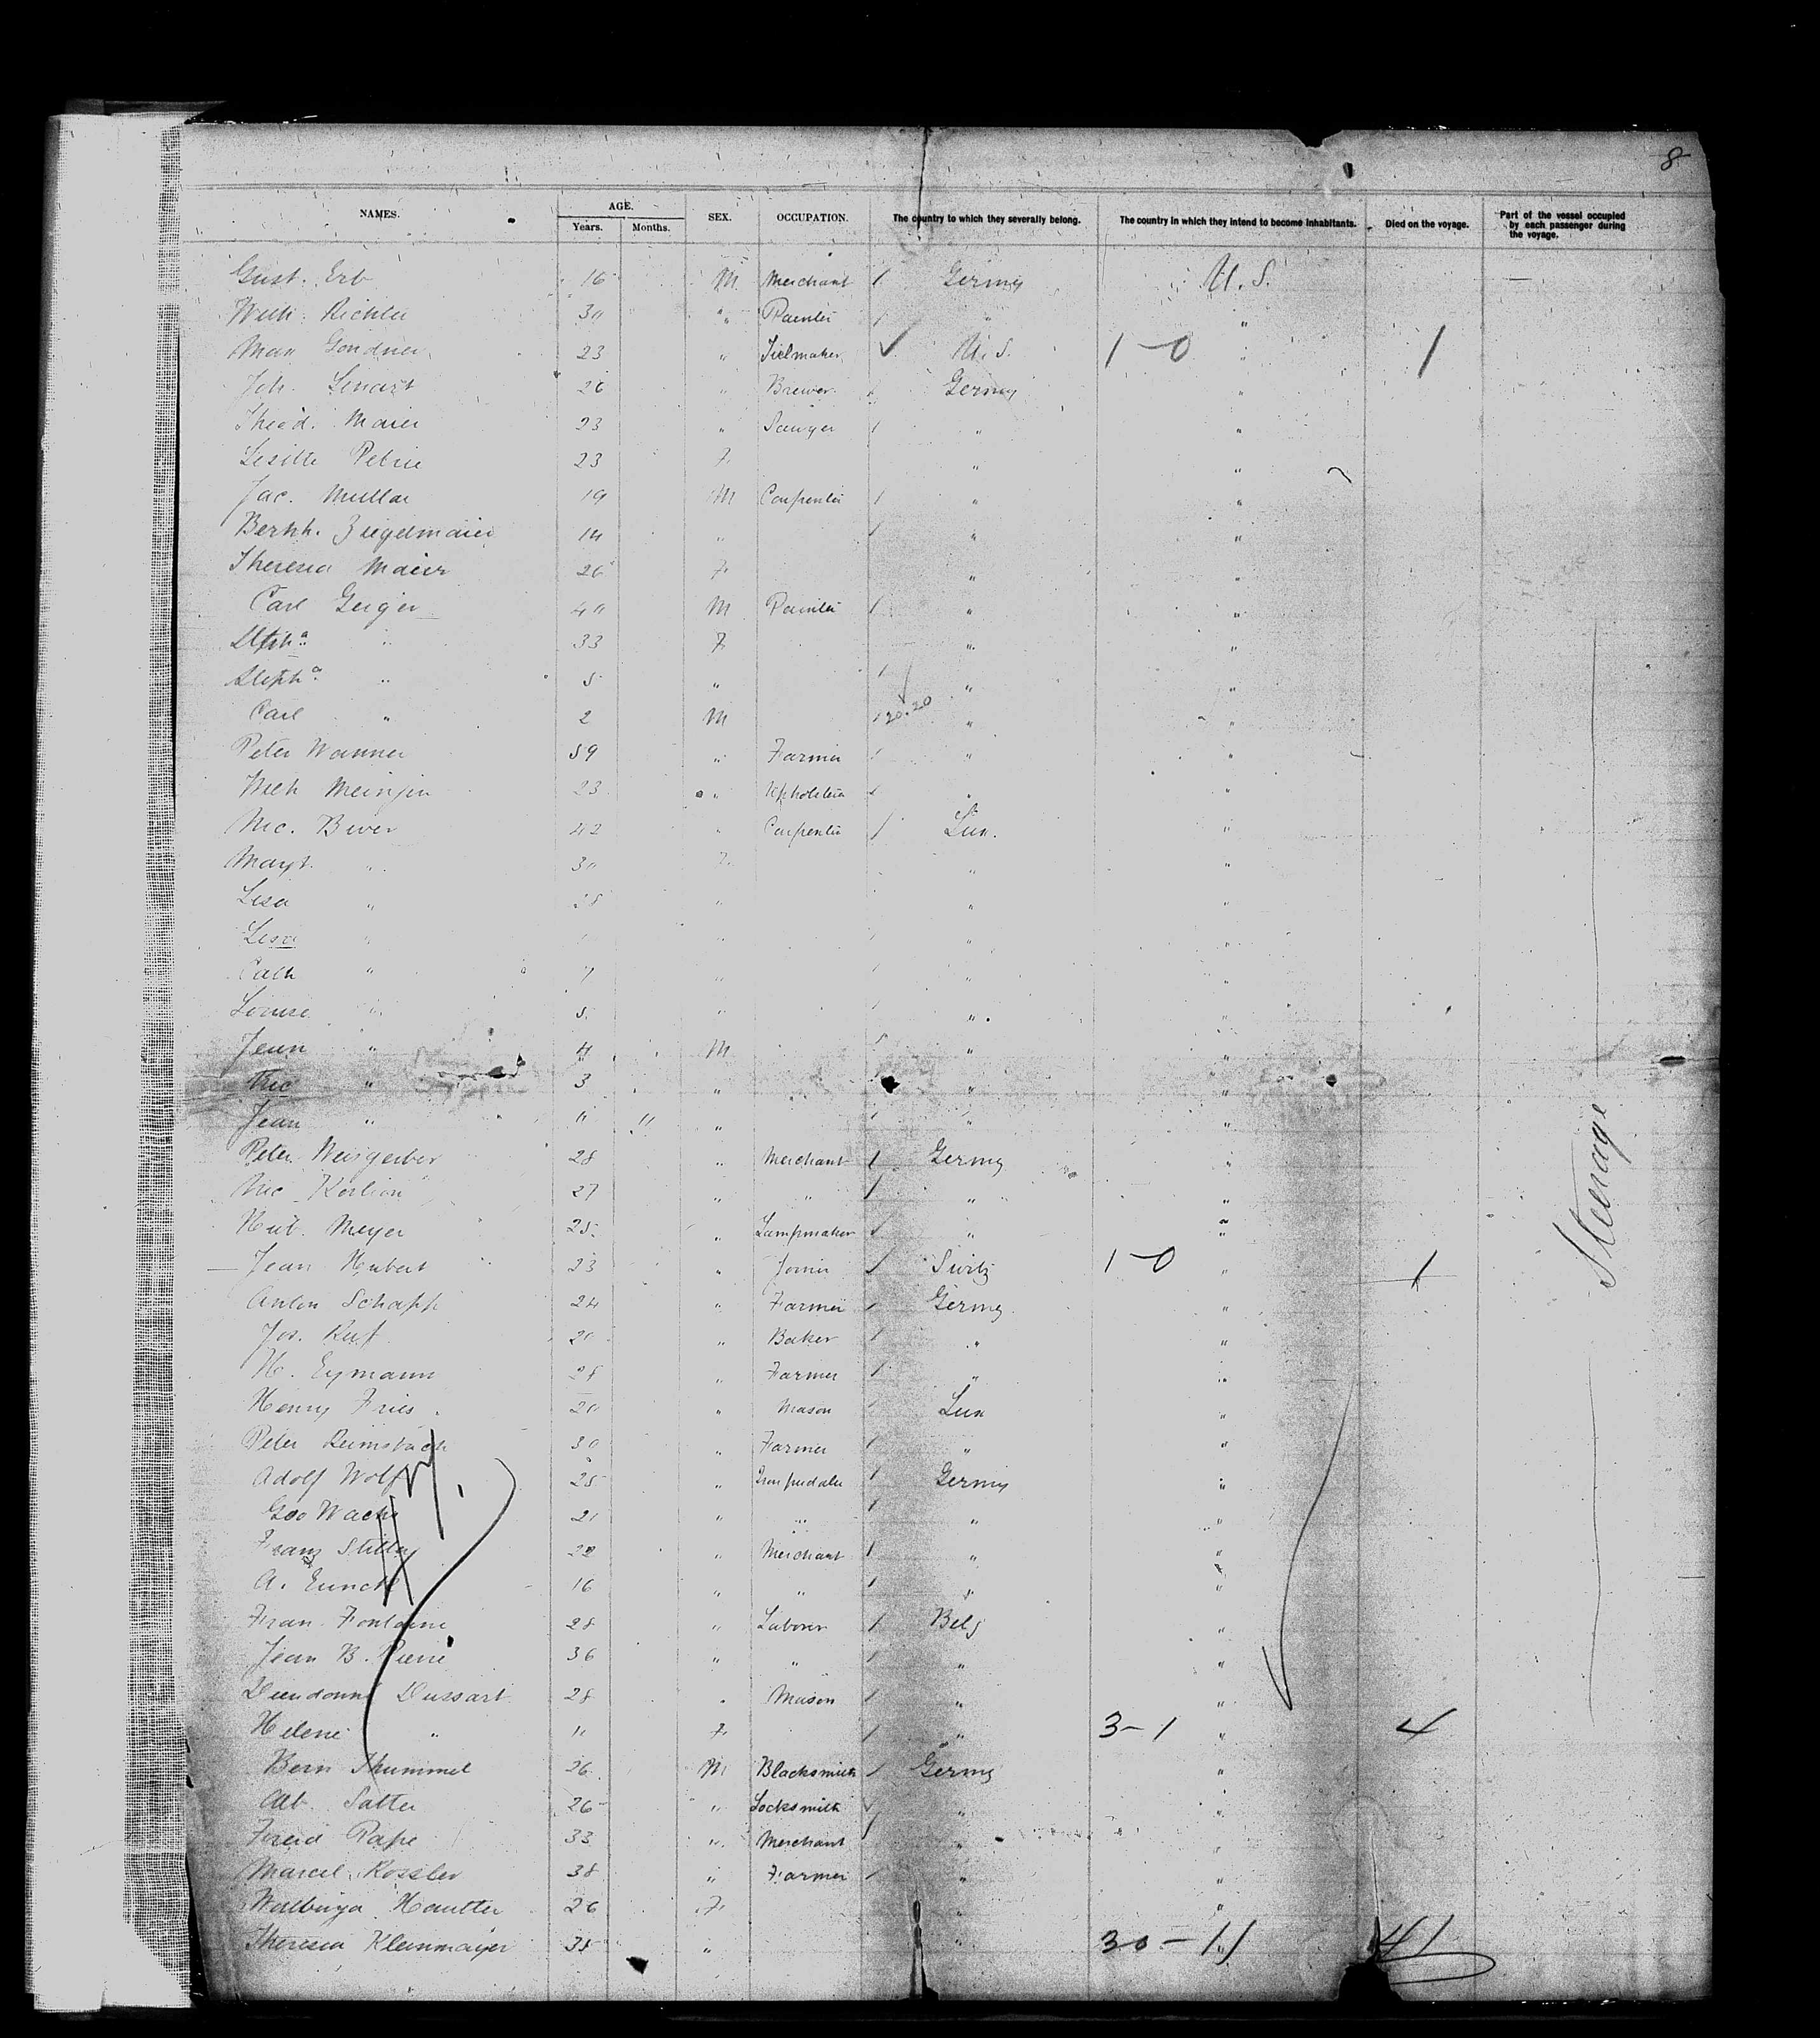 8
NAMES. AGE. SEX. OCCUPATION. The country to which they severally belong. The country in which they intend to become inhabitants. Died on the voyage. Part of the vessel occupied by each passenger during the voyage.
Years. Months.
Gust. Erb 16 M Merchant / Germy U.S.
Richter 30 " Painter / " "
Max Gondner 23 " ✓ U.S. 1-0 " 1
Joh. Lenart 26 " Brewer Germy "
Theod. Maier 23 " / " "
Petrie 23 F " "
Jac. Muller 19 M Carpenter / " "
Bernh. Ziegelmaier 14 " / " "
Theresia Maier 26 F " "
Carl Geiger 40 M Painter / " "
" 33 F " "
Steph.a " 5 " / " "
Carl " 2 M / 20.20 " "
Peter Wanner 59 " Farmer / " "
23 " " "
Nic. Biver 42 " Carpenter / Lux. "
Margt. " 30 F " "
Lisa " " " "
" " " "
Cath " 7 " / " "
Louise " 5 " / " "
Jean " 4 M " "
Nic " 3 " " "
Jean " 11 " / " "
Peter Weisgerber 28 " Merchant / Germy "
Nic 27 " " / " "
Hub. Meyer 25 " Lampmaker / " "
Jean Hubert 23 " Joiner / Switz 1-0 " 1
Anton Schapp 24 " Farmer / Germy "
Jos. Ruf 20 " Baker / " "
H. Eymann 28 " Farmer / " "
Henry Fries 20 " Mason / Lux "
Peter Reimsbach 30 " Farmer / " "
Adolf Wolff 25 " / Germy "
Geo Wachs 21 " " / " "
Franz 22 " Merchant / " "
A. 16 " " / " "
Fran. Fontaine 28 " Laborer / Belg "
Jean B. Pierre 36 " " / " "
Dieudonné Dussart 28 " Mason / " "
Helene " 11 F / " 3-1 " 4
Bern Thummel 26 M Blacksmith / Germy "
Alb. Satter 26 " Locksmith / " "
Pape 33 " Merchant / " "
Marcel Kossler 38 " Farmer / " "
Walburga Hautter 26 F " "
Theresia Kleinmayer 35 " " 30-11 41
Steerage